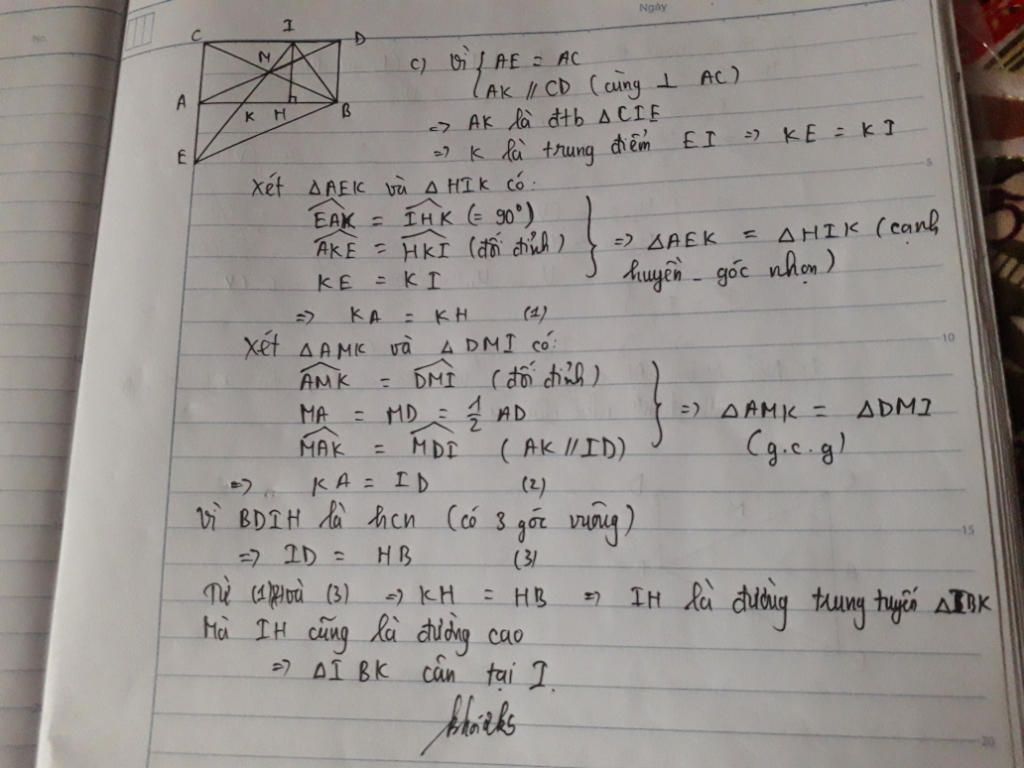 Ngày
No.
C I D
N
A K H B
E
c) Vì { AE = AC
AK // CD (cùng ⊥ AC)
=> AK là đtb △CIE
=> K là trung điểm EI => KE = KI
Xét △AEK và △HIK có:
EAK = IHK (= 90°)
AKE = HKI (đối đỉnh) } => △AEK = △HIK (cạnh
KE = KI huyền - góc nhọn)
=> KA = KH (1)
Xét △AMK và △DMI có:
AMK = DMI (đối đỉnh)
MA = MD = 1/2 AD } => △AMK = △DMI
MAK = MDI (AK // ID) (g.c.g)
=> KA = ID (2)
Vì BDIH là hcn (có 3 góc vuông)
=> ID = HB (3)
Từ (1)(2) và (3) => KH = HB => IH là đường trung tuyến △IBK
Mà IH cũng là đường cao
=> △IBK cân tại I.
5
10
15
20